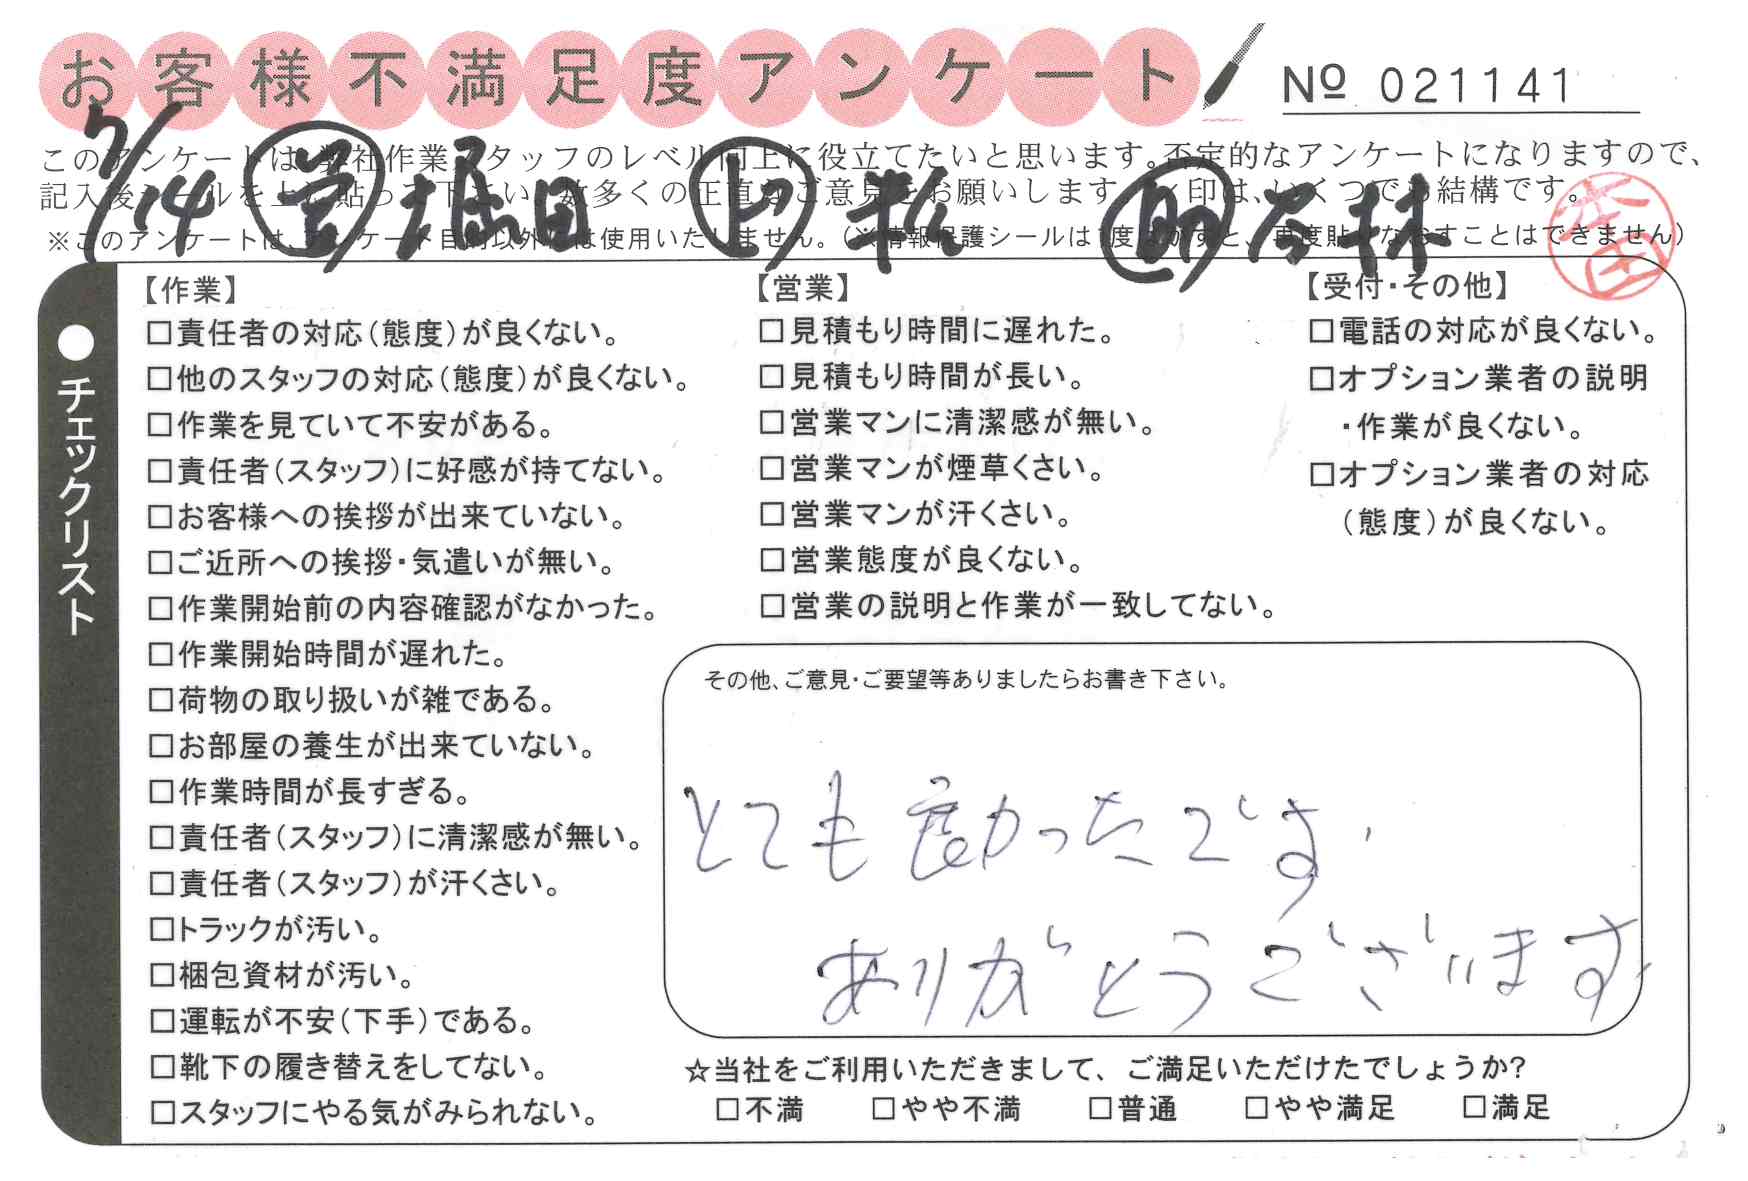 お客様不満足度アンケート
№ 021141
7/14 営 堀田 上 松 助 谷林
このアンケートは、弊社作業スタッフのレベル向上に役立てたいと思います。否定的なアンケートになりますので、
記入後シールを上に貼って下さい。数多くの正直なご意見をお願いします。✓印は、いくつでも結構です。
※このアンケートは、アンケート目的以外には使用いたしません。(※情報保護シールは1度はがすと、再度貼りなおすことはできません)
●チェックリスト
【作業】
□責任者の対応(態度)が良くない。
□他のスタッフの対応(態度)が良くない。
□作業を見ていて不安がある。
□責任者(スタッフ)に好感が持てない。
□お客様への挨拶が出来ていない。
□ご近所への挨拶・気遣いが無い。
□作業開始前の内容確認がなかった。
□作業開始時間が遅れた。
□荷物の取り扱いが雑である。
□お部屋の養生が出来ていない。
□作業時間が長すぎる。
□責任者(スタッフ)に清潔感が無い。
□責任者(スタッフ)が汗くさい。
□トラックが汚い。
□梱包資材が汚い。
□運転が不安(下手)である。
□靴下の履き替えをしてない。
□スタッフにやる気がみられない。
【営業】
□見積もり時間に遅れた。
□見積もり時間が長い。
□営業マンに清潔感が無い。
□営業マンが煙草くさい。
□営業マンが汗くさい。
□営業態度が良くない。
□営業の説明と作業が一致してない。
【受付・その他】
□電話の対応が良くない。
□オプション業者の説明
・作業が良くない。
□オプション業者の対応
(態度)が良くない。
その他、ご意見・ご要望等ありましたらお書き下さい。
とても良かったです.
ありがとうございます.
☆当社をご利用いただきまして、ご満足いただけたでしょうか?
□不満 □やや不満 □普通 □やや満足 □満足